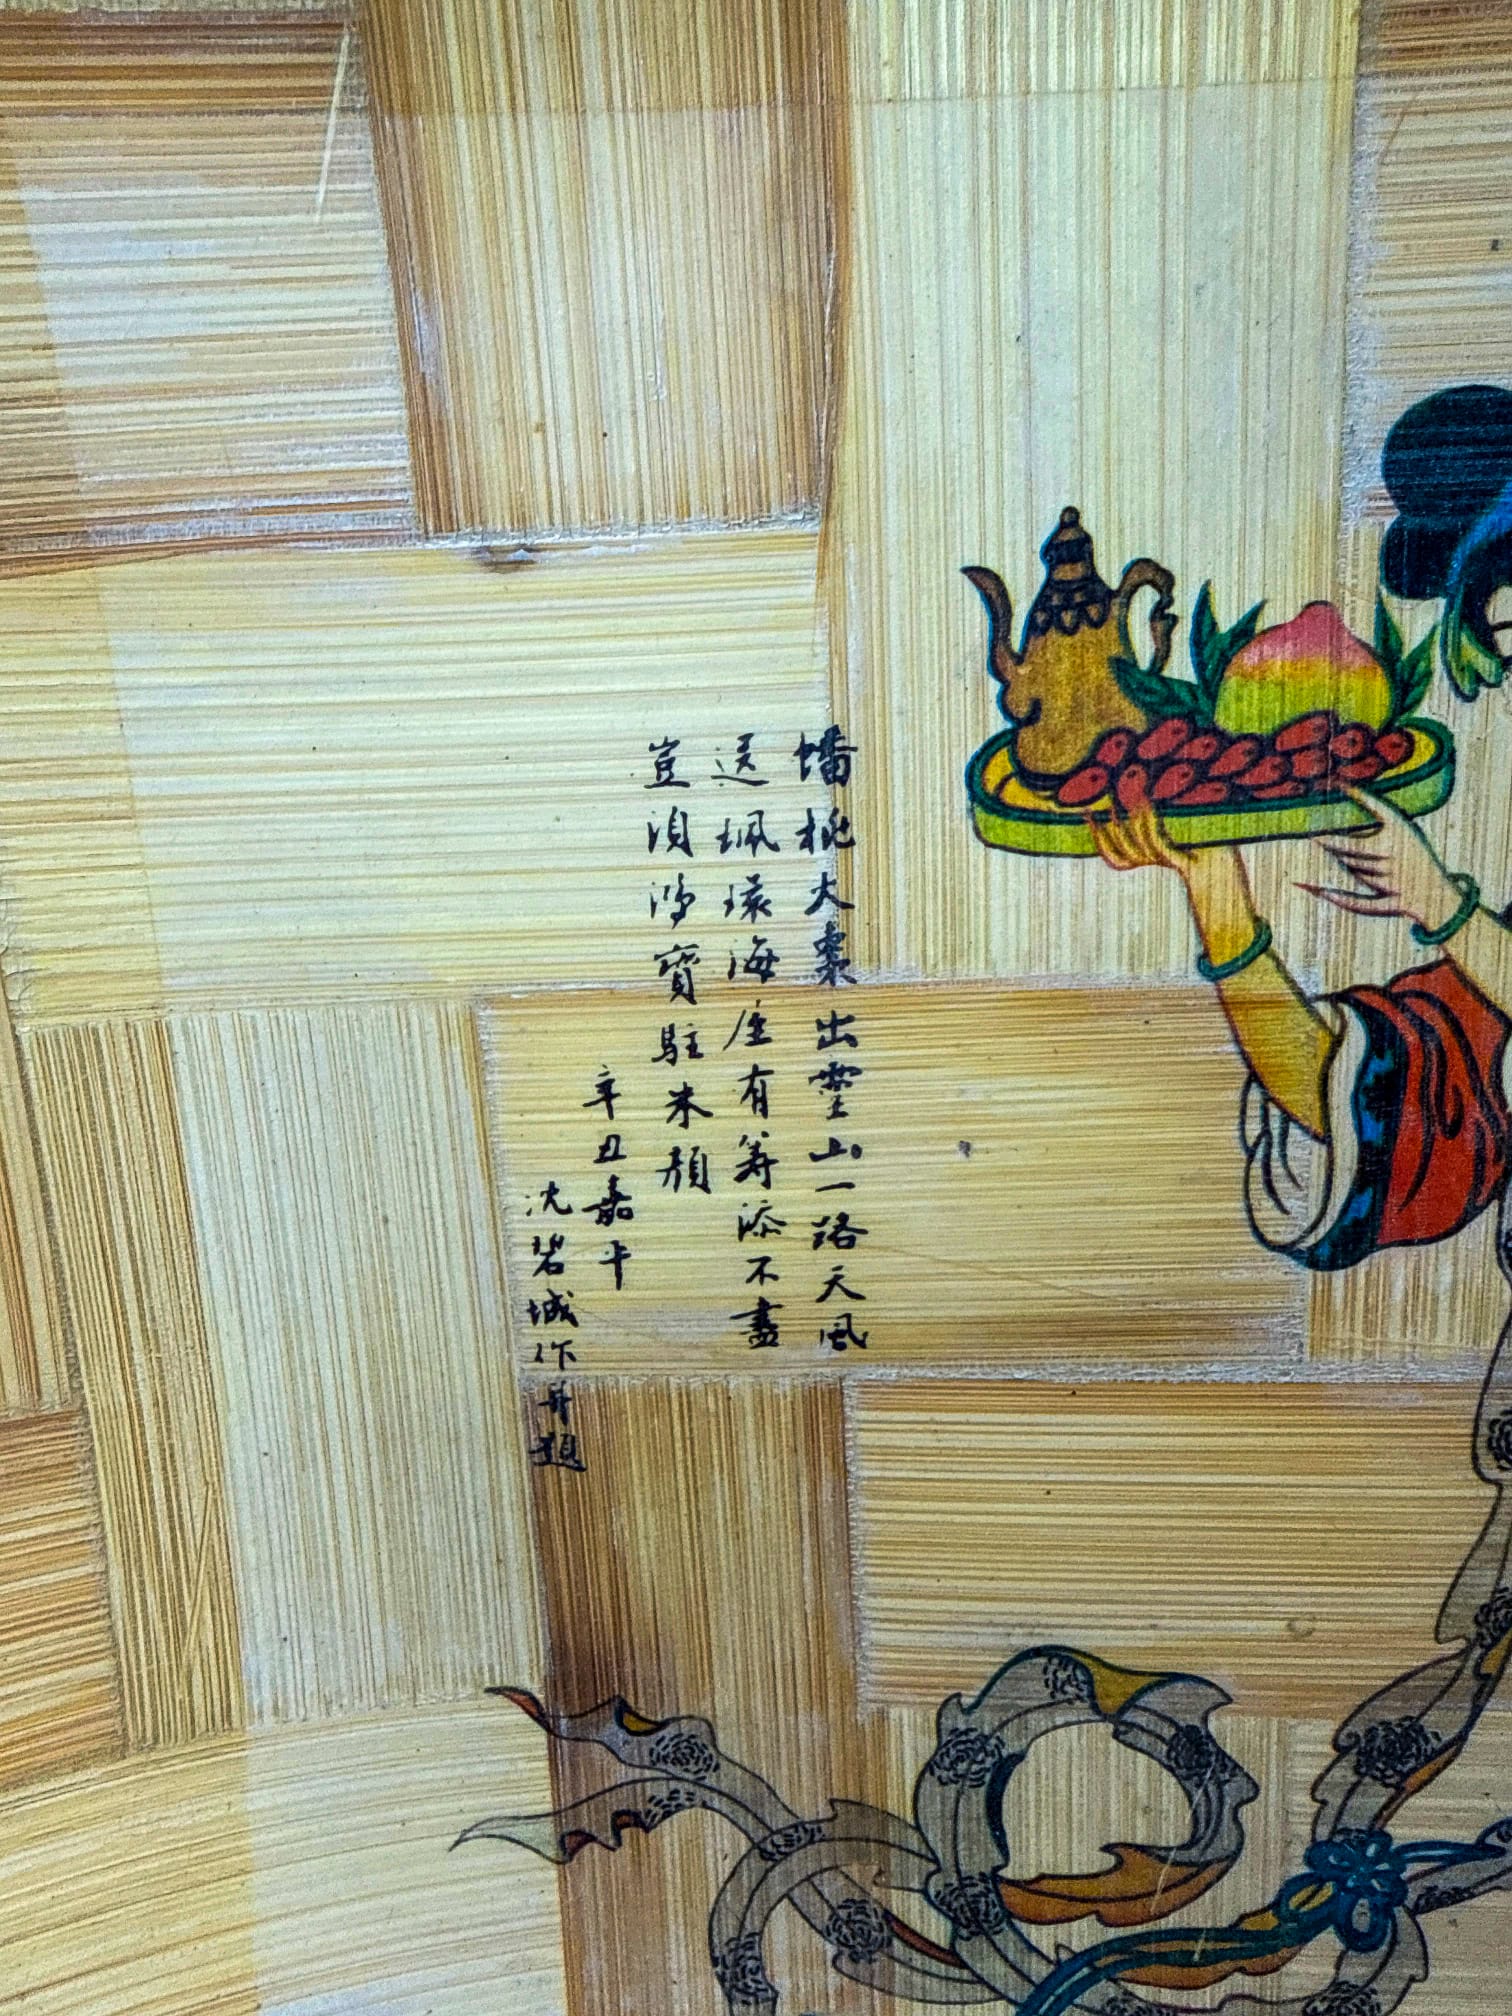 蟠桃大棗出靈山一路天風
送珮環海屋有籌添不盡
豈須鴻寶駐朱顏
辛丑嘉平
沈碧城作并題